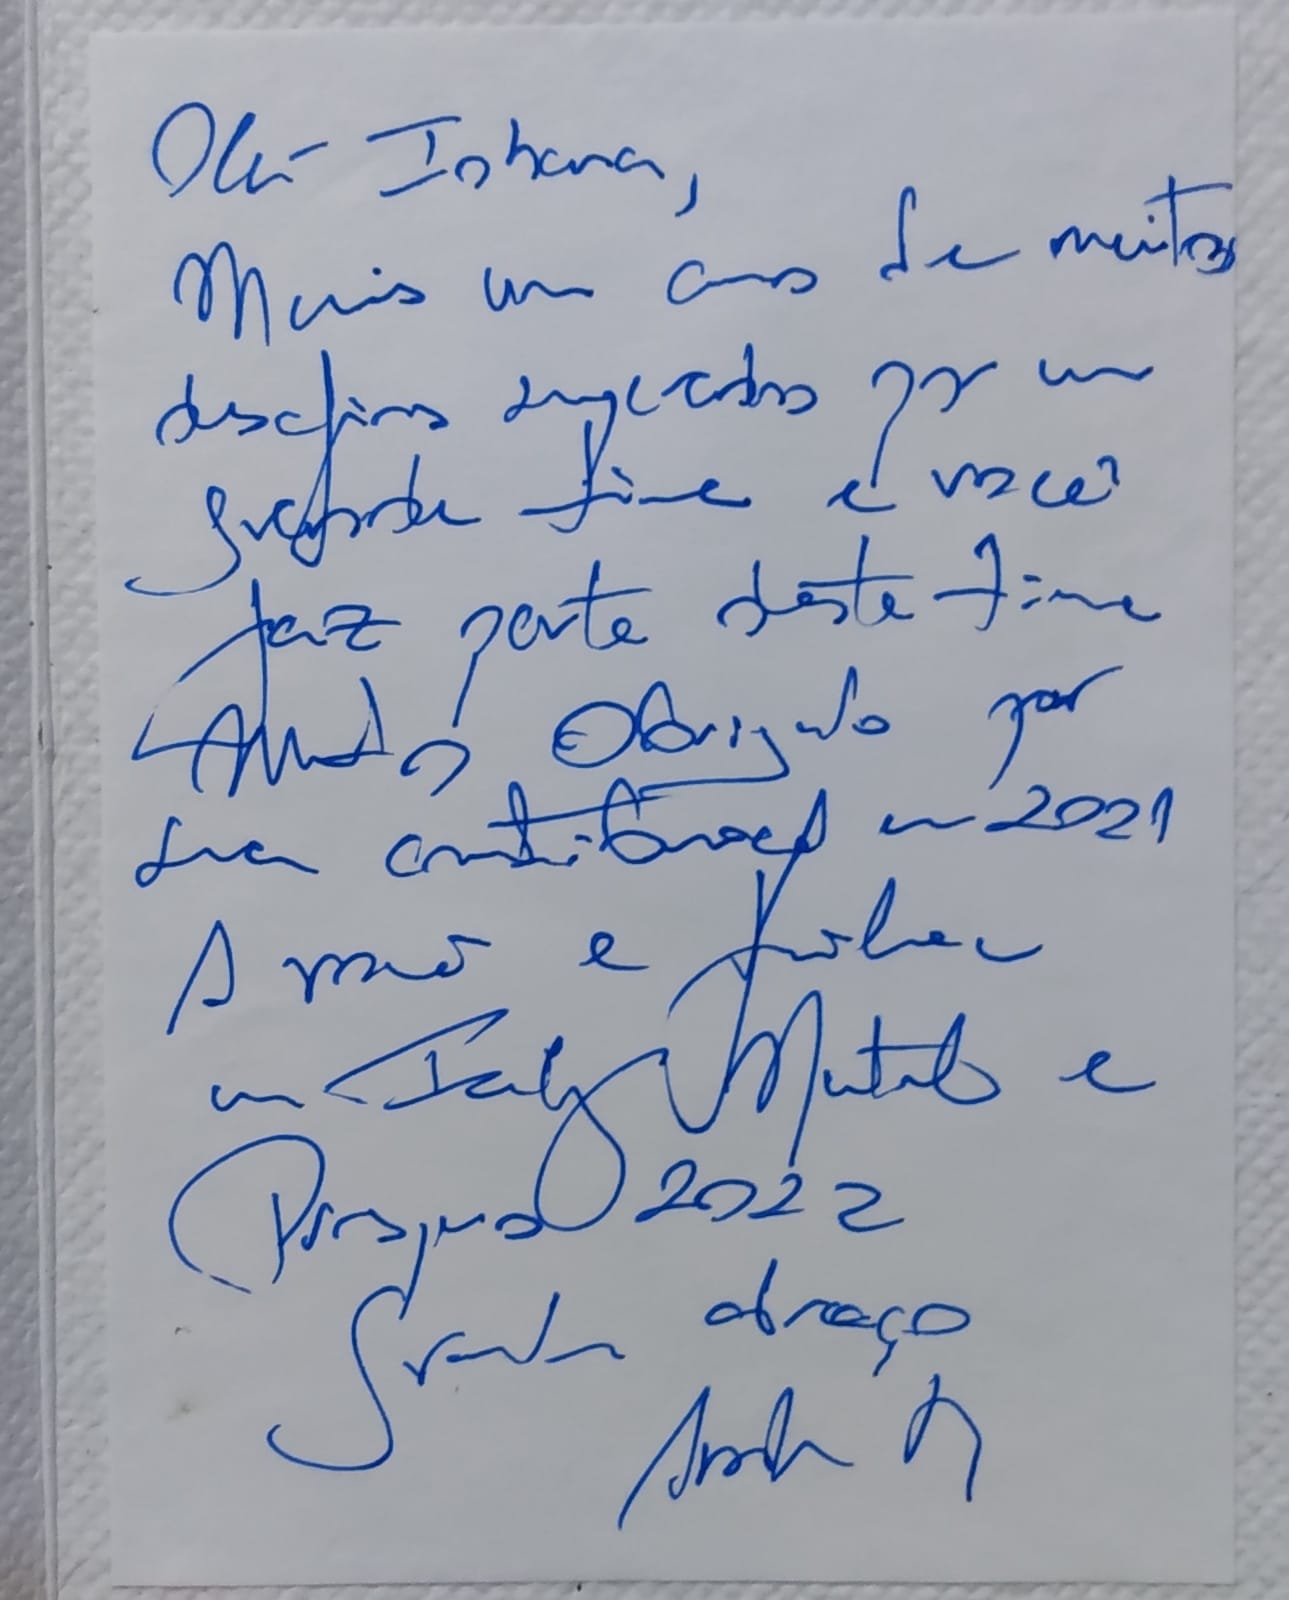 Olá Iohana,
Mais um ano de muitos
desafios superados por um
grande time e você
faz parte deste time
Muito Obrigado por
sua contribuição em 2021
A você e família
um Feliz Natal e
Prospero 2022
Grande abraço